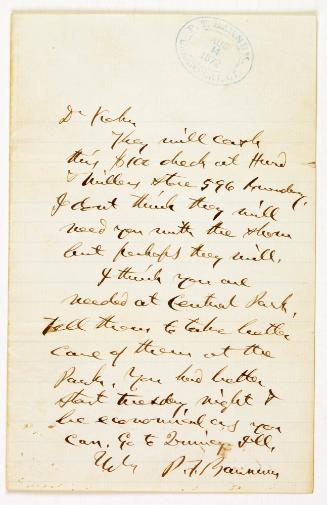 P. T. BARNUM
AUG
14
1872
BRIDGEPORT, CT.
Dr Kohn
They will cash
this $100 check at Hurd
& Millers store 596 Broadway.
I dont think they will
need you with the show
but perhaps they will.
I think you are
needed at Central Park.
Tell them to take better
care of them at the
Park. You had better
start tuesday night &
be economical as you
can. Go to Quincy Ill.
P. T. Barnum